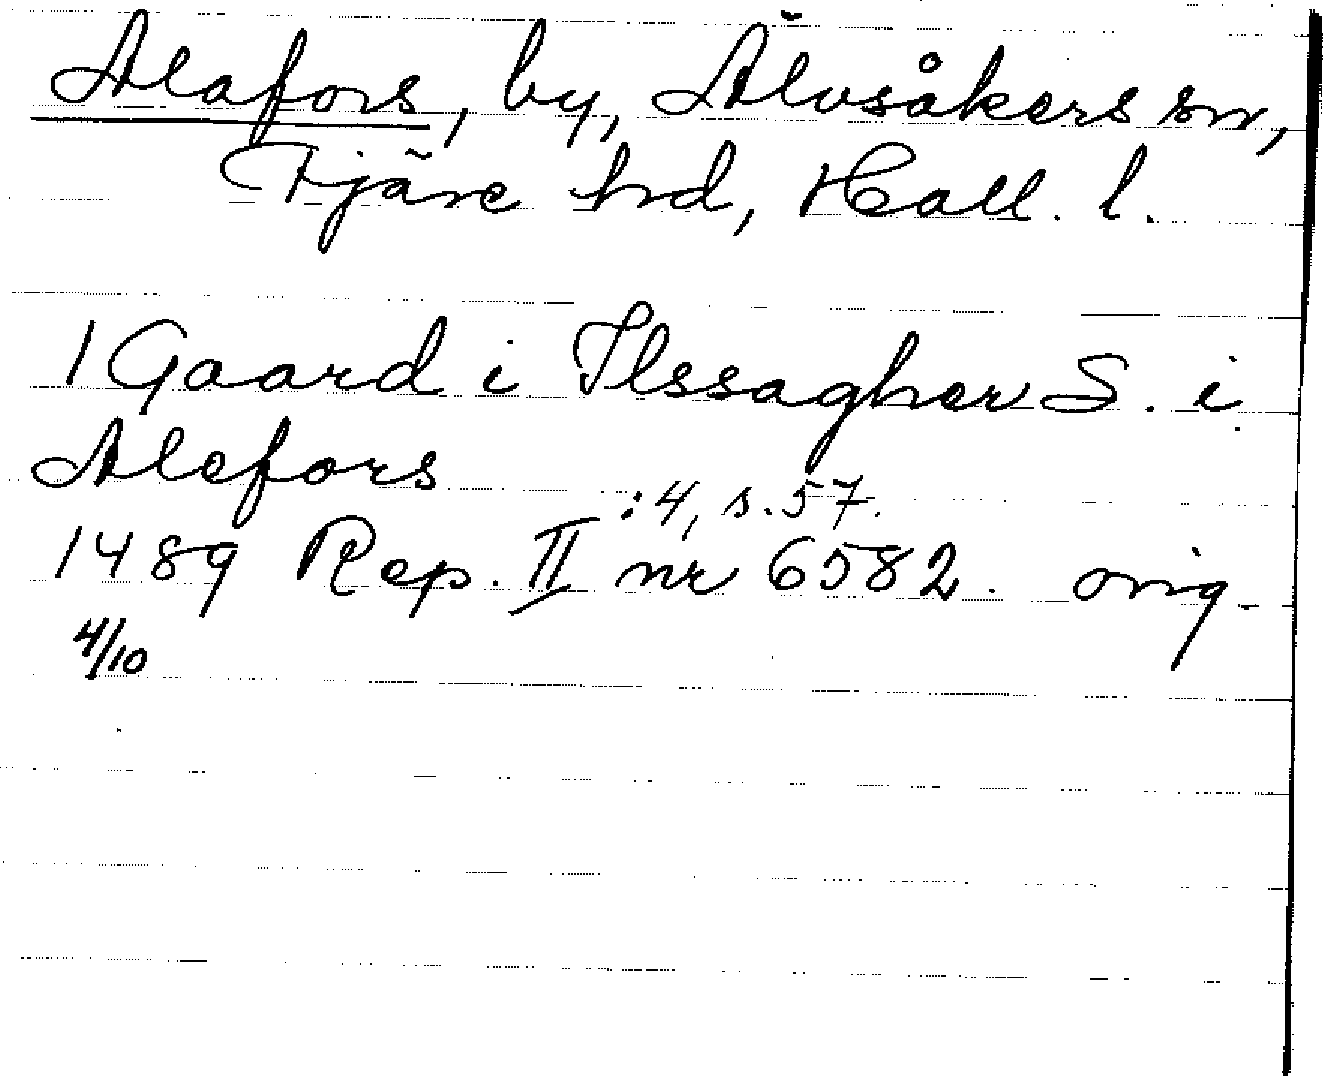 Alafors, by, Älvsåkers sn,
Fjäre hd, Hall. l.
1 Gaard i Ilssagher S. i
Alefors
:4, s. 57.
1489 Rep. II nr 6582. orig.
4/10